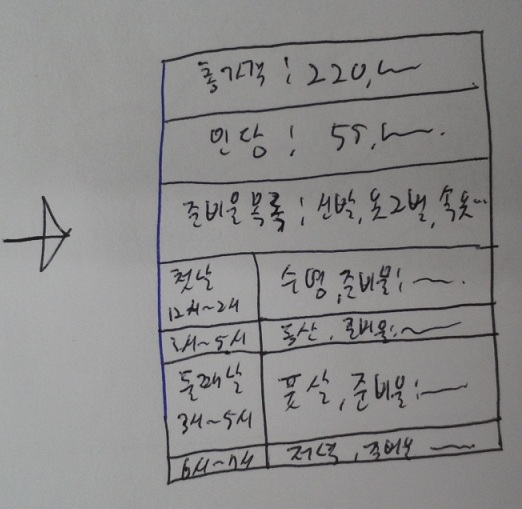 총가격 : 220,
인당 : 55,
준비물 목록 : 신발, 옷2벌, 속옷...
첫날
12시~2시
수영, 준비물 :
3시~5시
등산, 준비물 :
둘째날
3시~5시
풋살, 준비물 :
6시~7시
저녁, 준비물